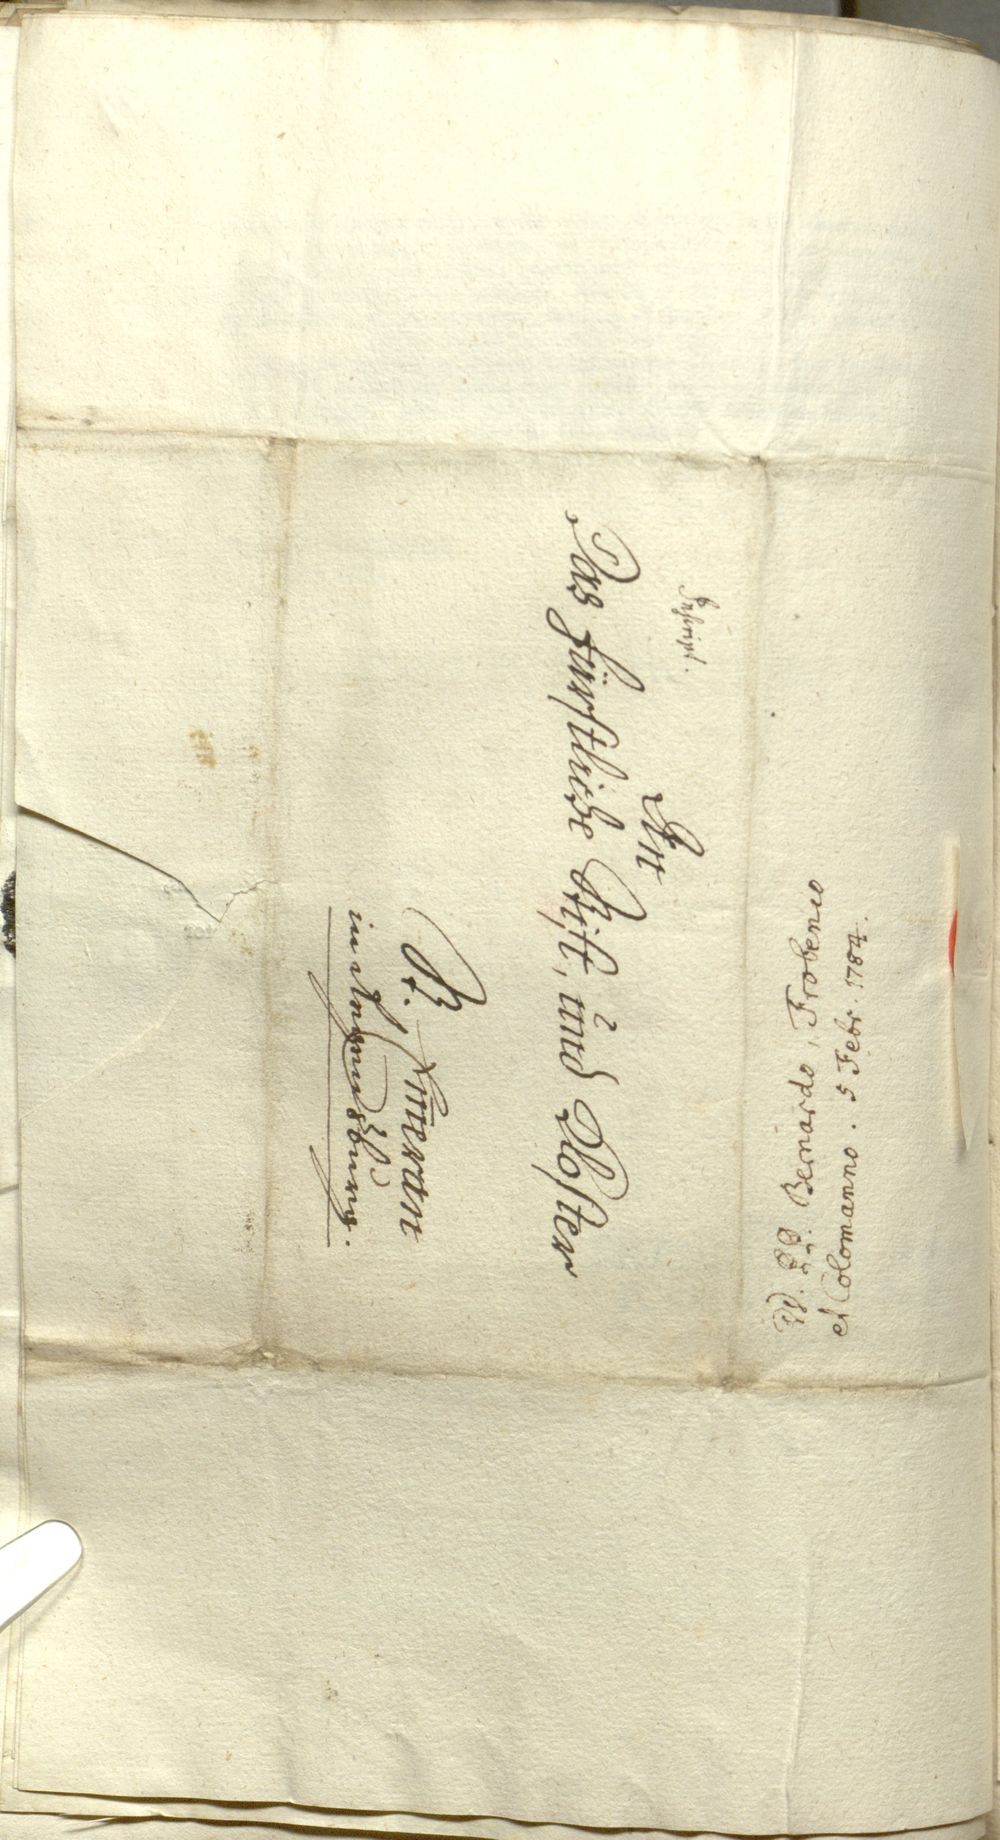 An
Das fürstliche Stift, und Closter
St. Emeran
in Regensburg.
PP. Bernardo, Frobenio
et Colomanno. 5 Febr. 1784.